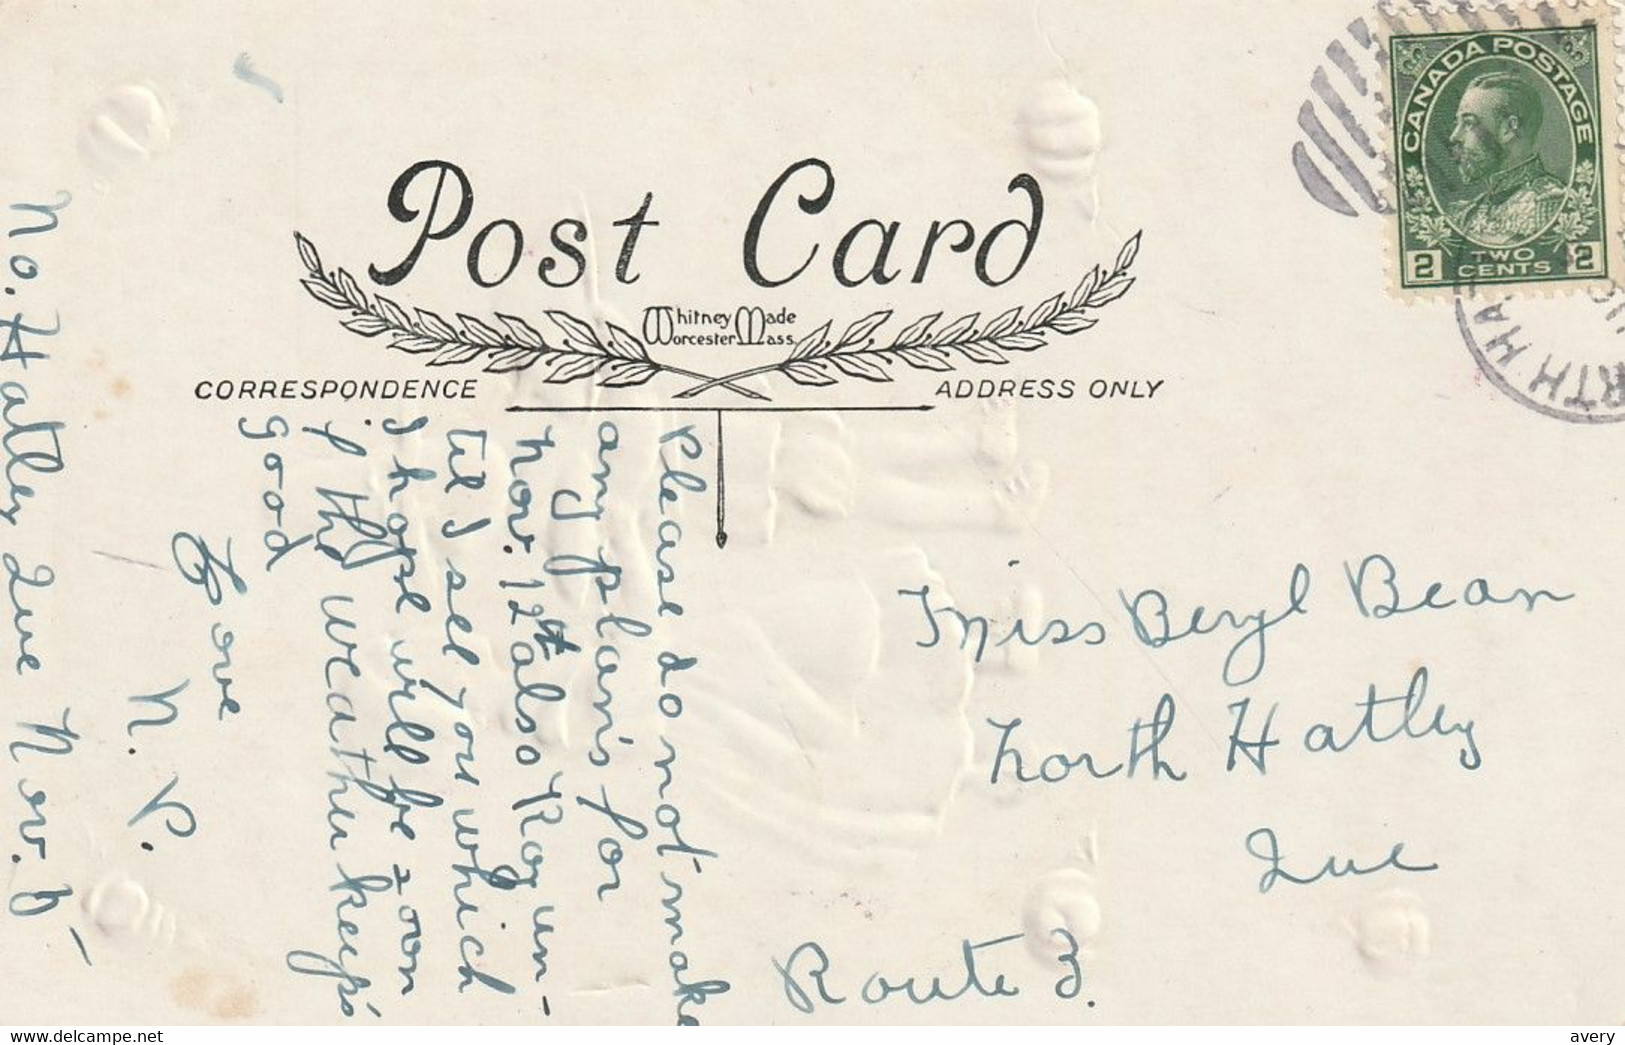 Post Card
Whitney Made
Worcester Mass.
CORRESPONDENCE
ADDRESS ONLY
CANADA POSTAGE
2 TWO CENTS 2
RTH HA
No. Hatley Que Nov. 5
Please do not make
any plan's for
Nov. 12th also Roy un-
til I see you which
I hope will be soon
if the weather keep's
good
Love
N. P.
Miss Beryl Bean
North Hatley
Que
Route 3.
delcampe.net
avery